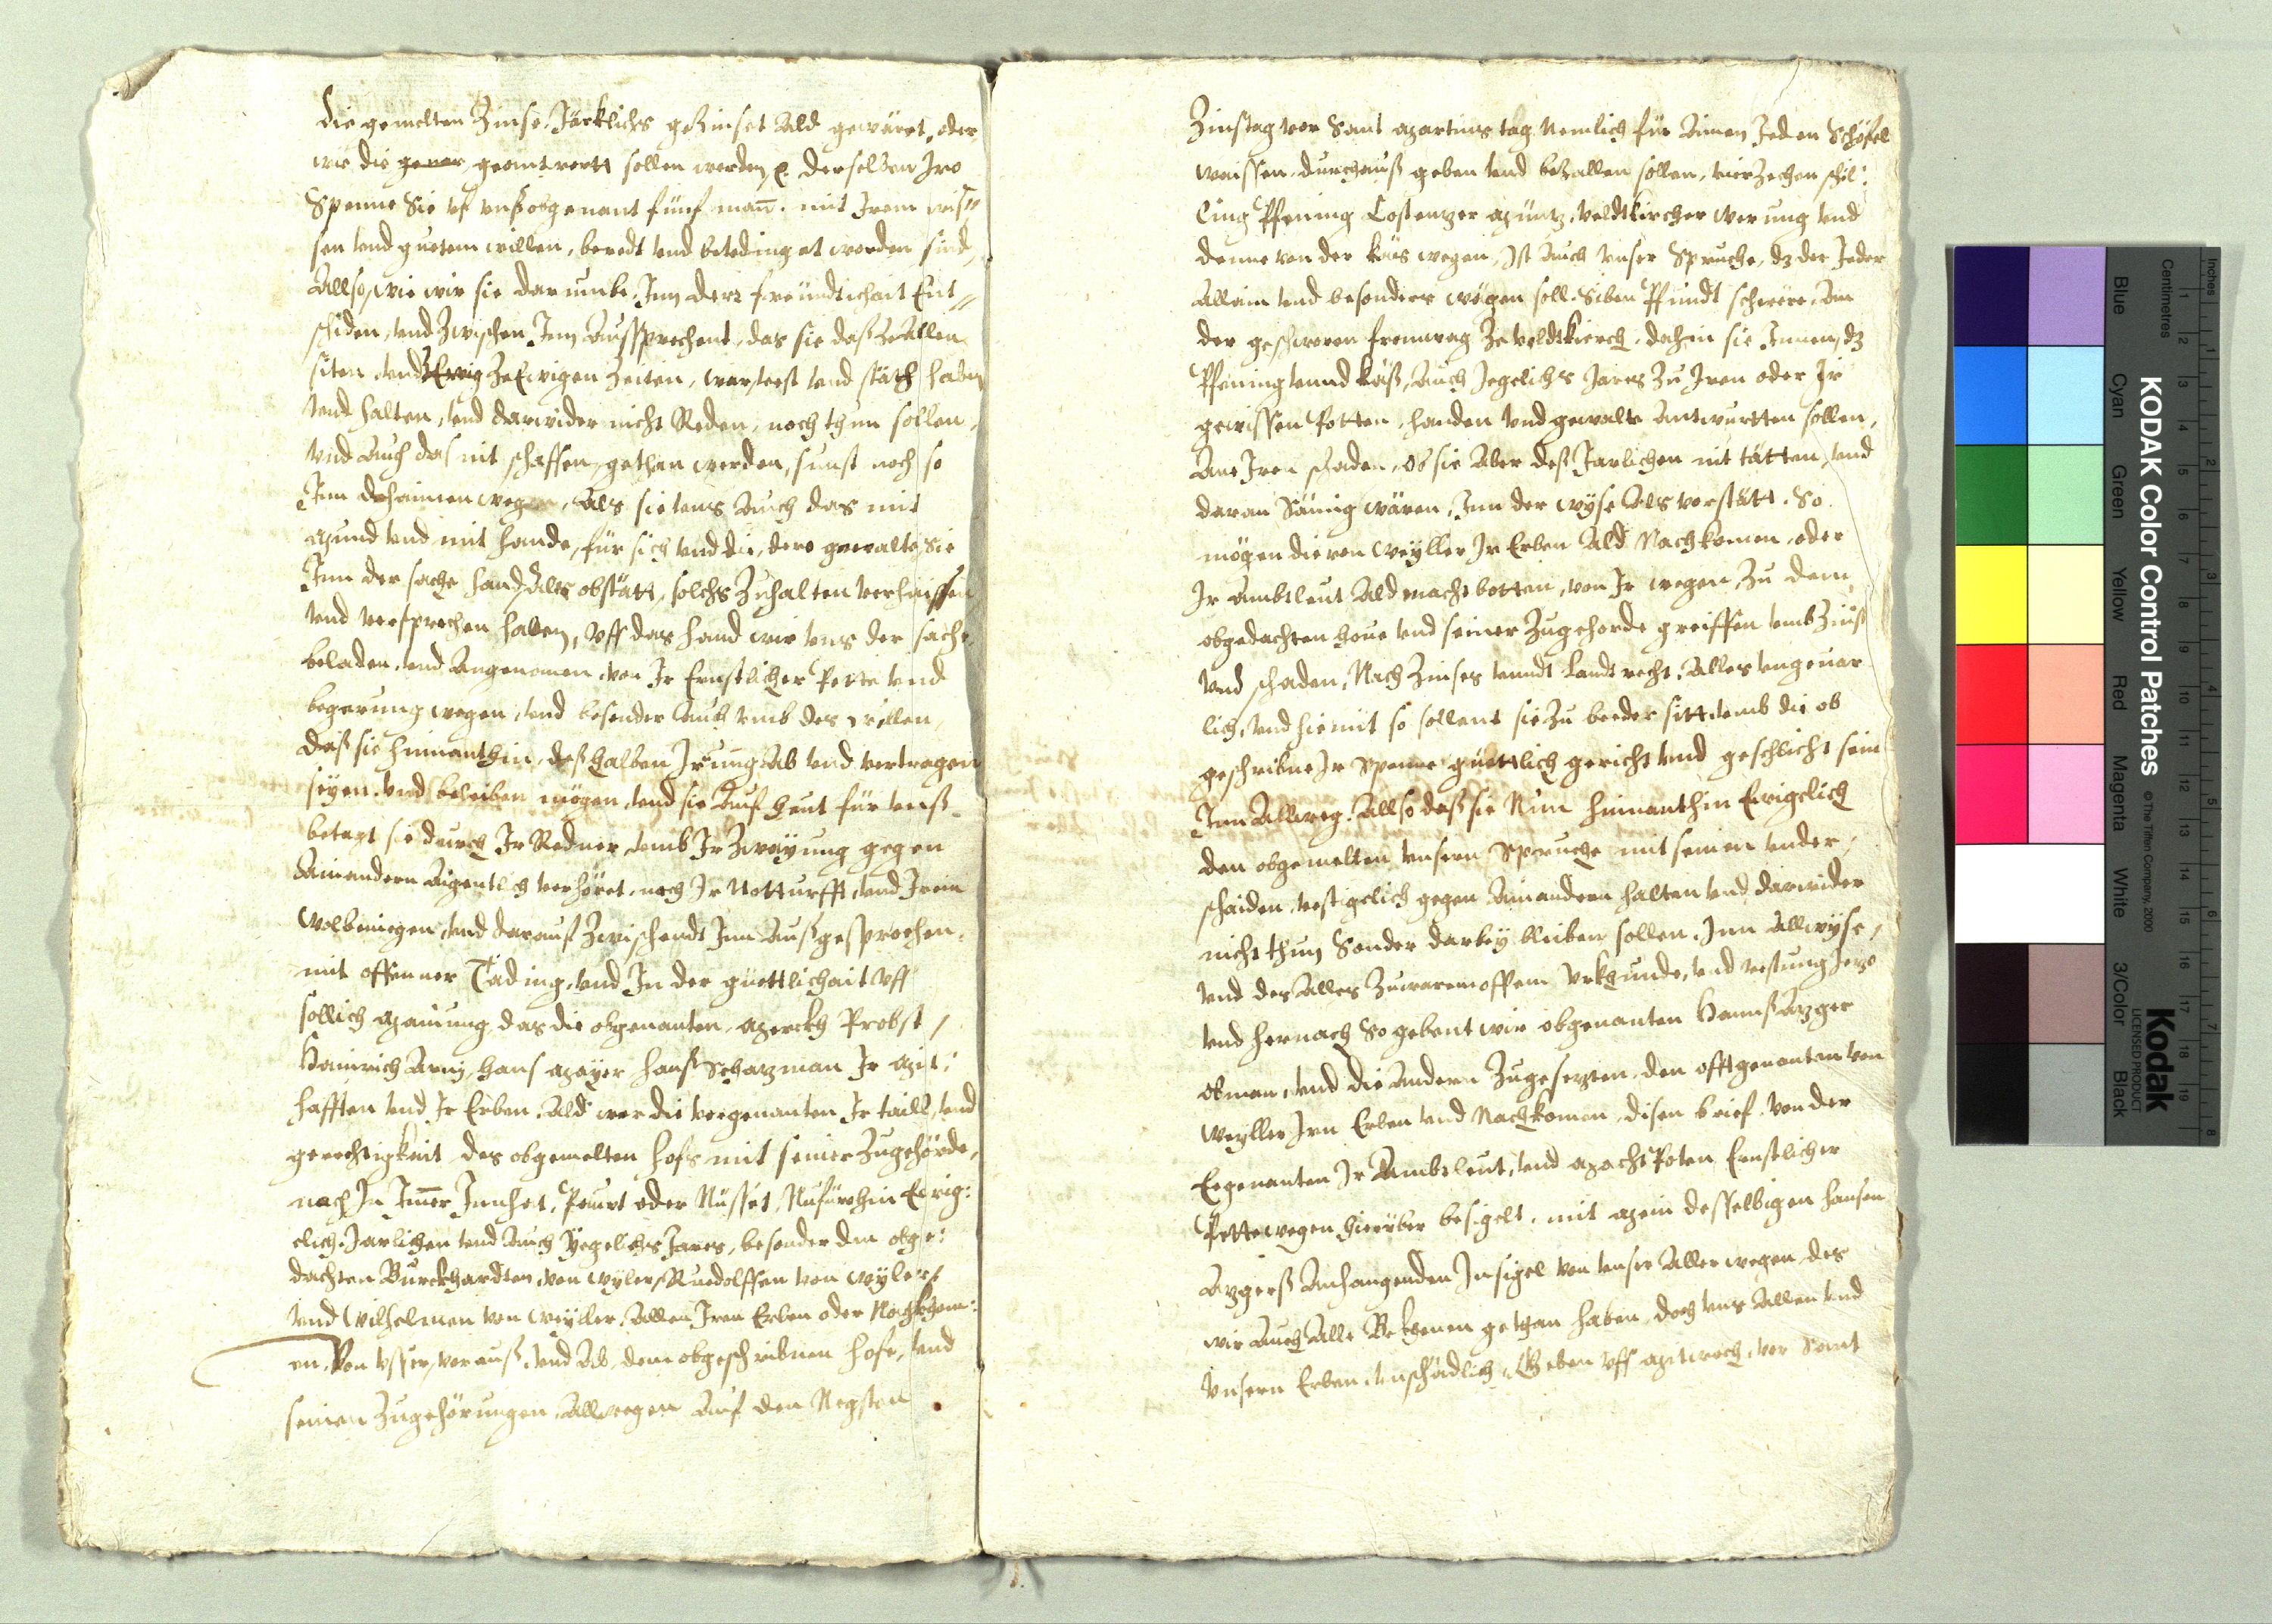 die gemelten Zinse, Järklichs gezinset ald gewäret, oder
wie die gewer geantwortt sollen werden, derselben Jro
Spenne Sie vf vnß obgenant fünf man̄. mit Jrem wis"
sen vnd guetem willen, beredt vnd betedinget worden sind,
Allso, wie wir sie darumbe, Jnn derr freündtschait Ent"
schiden, vnd Zwischen Jnn Aussprechent, das sie daß ze Allen
siten, vnd Ewig ze Ewigen Zeiten, war, vest vnd stäth haben
vnd halten, vnd darwider nicht Reden, noch thun sollen,
vnd Auch das nit schaffen, gethan werden, sunst noch so
Jnn dehainen wegen, Als sie vns Auch das mit
Mund vnd mit hande, für sich vnd die, dero gewalte Sie
Jnn der sache hand, Alls obstätt, solchs Zuhalten verhaissen
vnd versprochen haben, vff das hand wir vns der sache
beladen, vnd Angenomen, von Jr Ernstlicher Pette vnd
begerung wegen, vnd besonder Auch vmb des willen,
daß sie hinnanthin, deßhalben Jrung Ab vnd vertragen
seyen, vnd beleiben mögen, vnd sie Auf heut für vnß
betagt sie durch Jr Redner, vmb Jr Zwayung gegen
Ainandern Aigentlich verhöret, nach Jr Notturfft, vnd Jrem
Wolbeniegen, vnd darauf Zwischendt Jnn Außgesprochen,
mit offenner Täding, vnd Jn der güettlichait vff
sollich Mainung, das die obgenanten, Merckh Probst,
Hainrich Amy, Hans Mayer Hanß Schazman Jr Mit:
hafften vnd Jr Erben, Ald wer die vorgenanten Jr taill, vnd
gerechtigkait des obgemelten hofs mit seiner Zugehörde,
nach Jn Jm̄er Jnnhat, Peuwt oder Nüsset, Nufürohin Ewig:
clich, Jarlichen vnd Auch Yegeliches Jares, besonder den obge:
dachten Burckhardten, von Wyler, Ruedolffen von Wyler,
vnd Wilhelmen von Weyller, Allen Jren Erben oder Nachkom:
en, Von vsser, vorauß, vnd Ab, dem obgeschribnen hofe, vnd
seinen Zugehörungen, Allwegen Auf den Negsten
Zinstag vor Sant Martins tag Nemlich für Ainen Jeden Schöffel
waissen, durchauß geben vnd bezallen sollen, vierzechen schil:
ling Pfening Costentzer Müntz, Veldtkircher werung vnd
denne von der käs wegen, Jst Auch vnser Spruche, dz der Jeder
Allain vnd besonders wögen soll, Siben Pfundt schwere, Am
der geschworen fronwag Ze Veldtkierch, dahin sie Jnnen, dz
Pfening vnnd käß, Auch Jegelichs Jares Zu Jren oder Jr
gewissen Potten, handen vnd gewalte Antwurtten sollen,
Ane Jren schaden, Ob sie Aber deß Jarlichen nit tätten, vnd
daran Säumig wären, Jnn der wyse Als vorstätt. So
mögen die von Weyller Jr Erben Ald Nachkomen, oder
Jr Ambtleut Ald macht botten, von Jr wegen, Zu dem
obgedachten houe vnd seiner Zugehorde greiffen vmb Zinß
vnd schaden, Nach Zinses vnndt Landt recht, Alles vngeuar
lich, vnd hiemit so sollent sie Zu beeder sitt, vmb die ob
geschribne Jr Spenne güettlich gericht vnd geschlicht sein
Jnn Allweg. Allso daß sie Nun hinnanthin Ewigclich
den obgemelten vnsern Spruche mit seinen vnder,
schaiden, vestigclich gegen Ainandern halten vnd darwider
nicht thun, Sonder darbey bleiben sollen. Jnn Allwyse,
vnd des Alles Zuwarem offem Vrkhunde, vnd vestung Jezo
vnd hernach so gebent wir obgenanten Hannß Mzger
obman, vnd die Andern Zugesezten, den offtgenanten von
Weyller Jrn Erben vnd Nachkomen, disen brief, von der
Eegenanten Jr Ambtleut, vnd Macht Poten Ernstlicher
Pette wegen, hierüber besigelt, mit Mein desselbigen Hansen
Mzgerß Anhangenden Jnsigel von vnser Aller wegen, des
wir Auch Alle Bekhenen gethan haben, doch vns Allen vnd
Vnsern Erben, vnschödlich, Geben vff Mitwoch, vor Sant